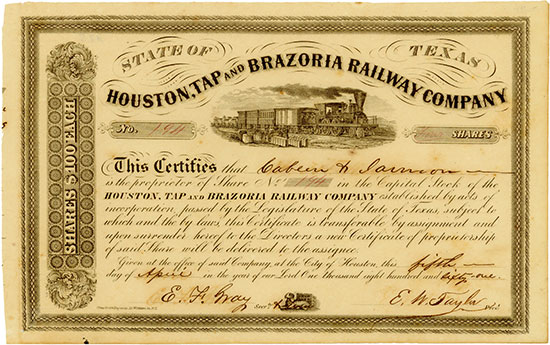 STATE OF TEXAS
HOUSTON, TAP AND BRAZORIA RAILWAY COMPANY
NO. 194 SHARES
SHARES $100 EACH
This Certifies that
is the proprietor of Share No. in the Capital Stock of the
HOUSTON, TAP AND BRAZORIA RAILWAY COMPANY established by acts of
incorporation, passed by the Legislature of the State of Texas, subject to
which and the by laws, this Certificate is transferable, by assignment and
upon surrender hereof to the Directors a new Certificate of proprietorship
of said Share will be delivered to the assignee.
Given at the office of said Company, at the City of Houston, this fifth
day of April in the year of our Lord One Thousand eight hundred and sixty-one.
E. F. Gray Secy. E. W. Taylor